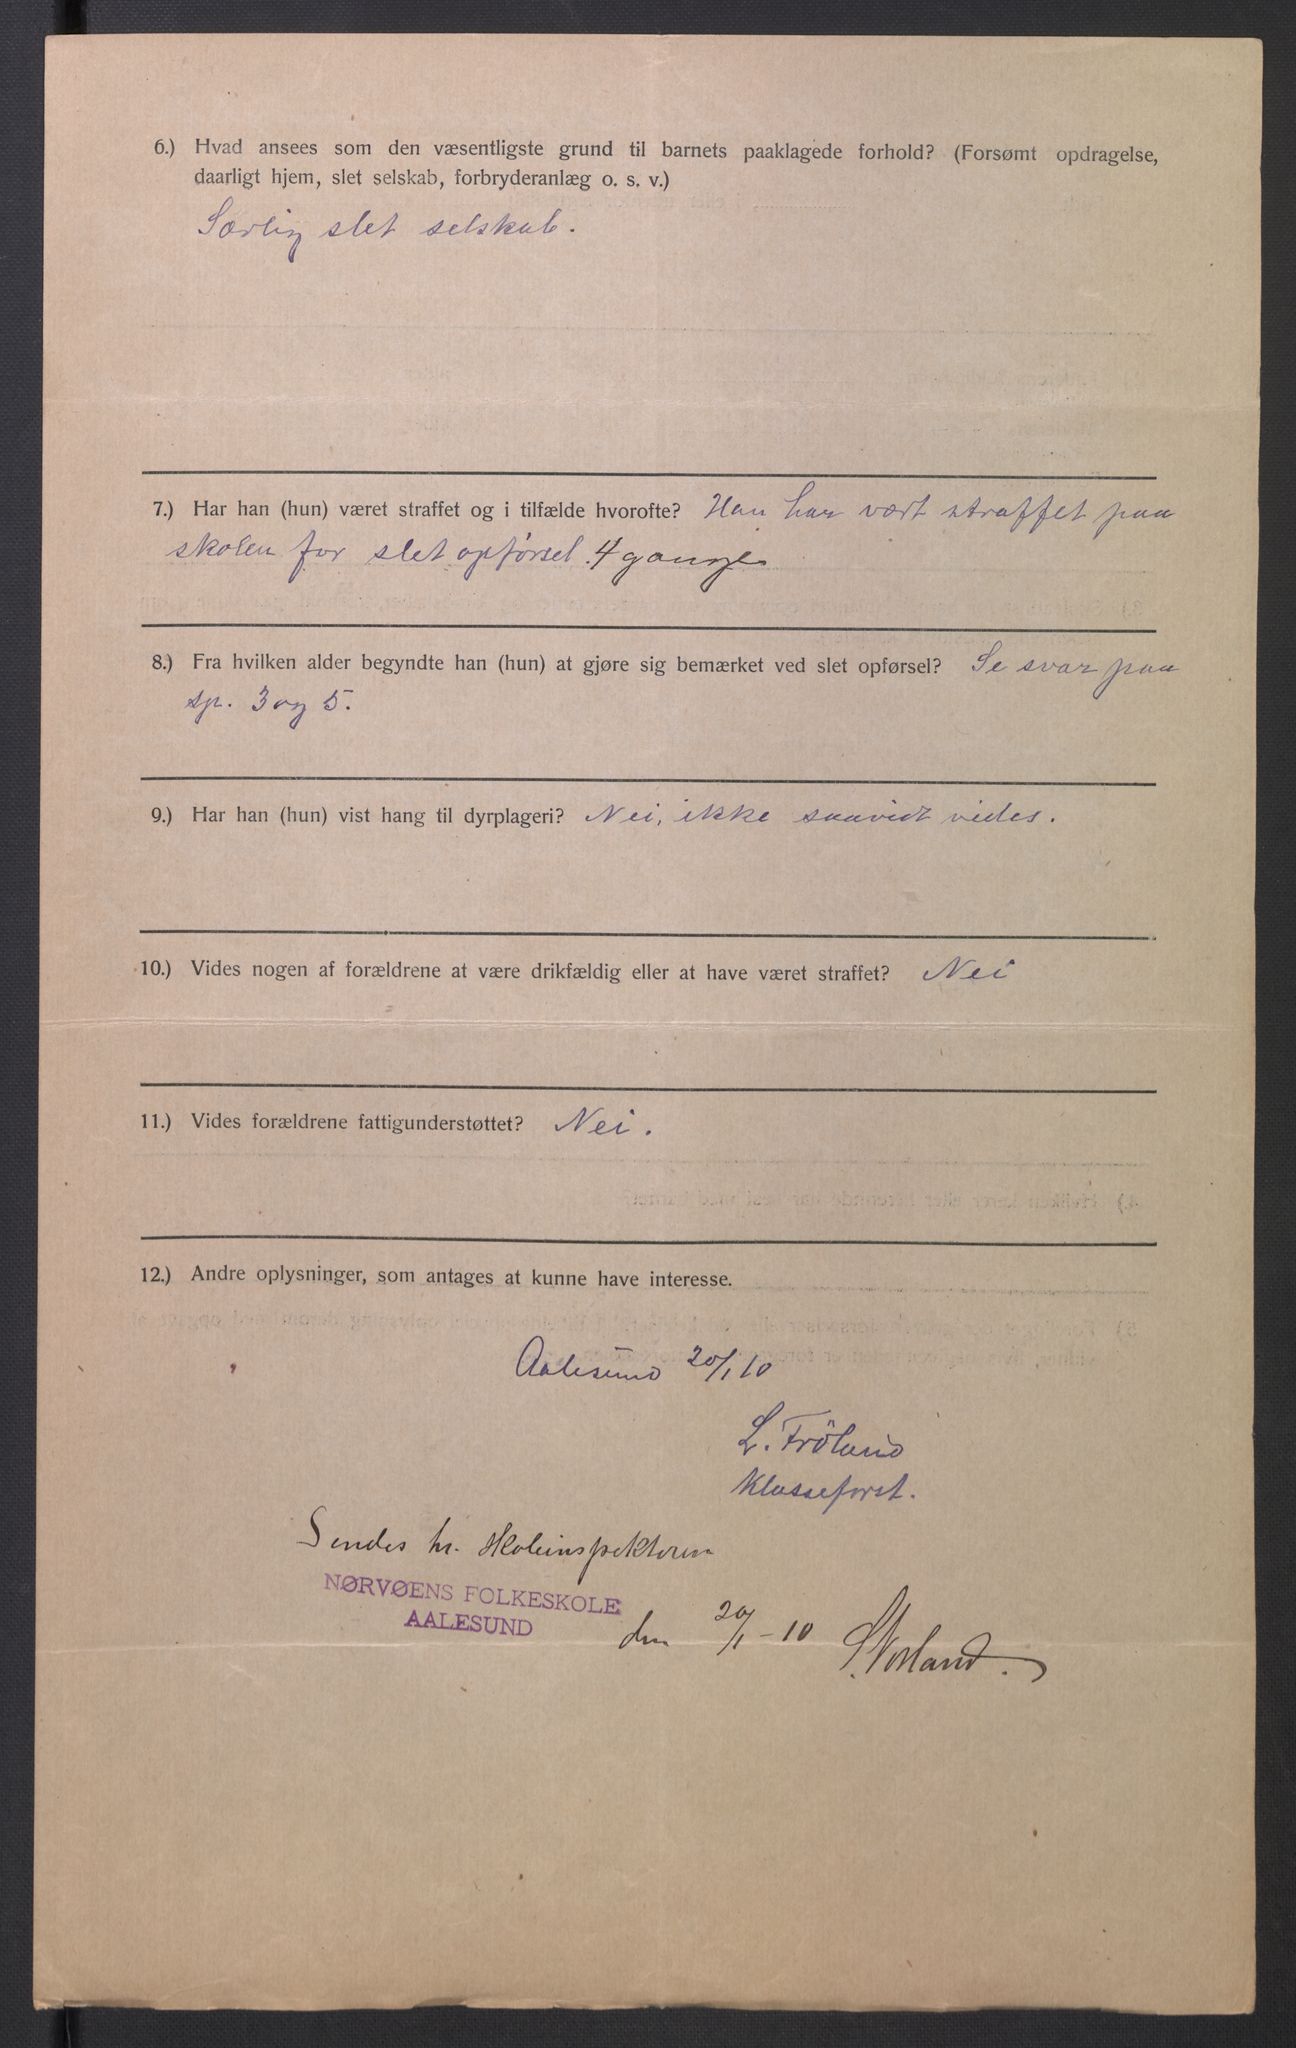 6.) Hvad ansees som den væsentligste grund til barnets paaklagede forhold? (Forsømt opdragelse,
daarligt hjem, slet selskab, forbryderanlæg o. s. v.)
Særlig slet selskab.
7.) Har han (hun) været straffet og i tilfælde hvorofte? Han har vært straffet paa
skolen for slet opførsel. 4 gange
8.) Fra hvilken alder begyndte han (hun) at gjøre sig bemærket ved slet opførsel? Se svar paa
sp. 3 og 5.
9.) Har han (hun) vist hang til dyrplageri? Nei, ikke saavidt vides.
10.) Vides nogen af forældrene at være drikfældig eller at have været straffet? Nei
11.) Vides forældrene fattigunderstøttet? Nei.
12.) Andre oplysninger, som antages at kunne have interesse.
Aalesund 20/1 10
L. Frölund
Klasseforst.
Sendes hr. skoleinspektøren
NØRVØENS FOLKESKOLE
AALESUND
den 20/1 - 10